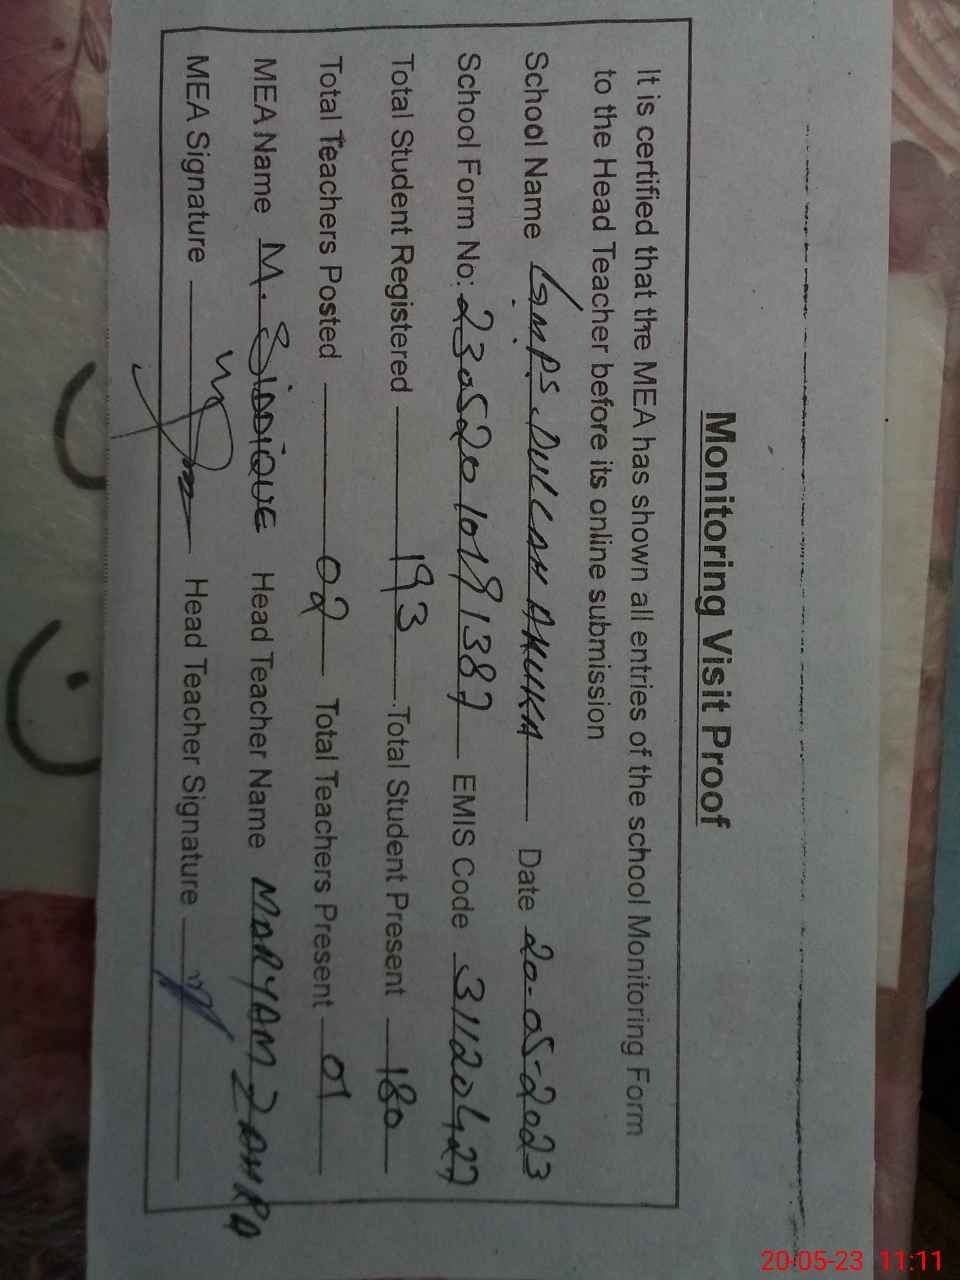 Monitoring Visit Proof
It is certified that the MEA has shown all entries of the school Monitoring Form
to the Head Teacher before its online submission
School Name GMPS. DULLAH AHUKA Date 20-05-2023
School Form No: 23052010191387 EMIS Code 31120427
Total Student Registered 193 Total Student Present 180
Total Teachers Posted 02 Total Teachers Present 01
MEA Name M. SIDDIQUE Head Teacher Name MARYAM ZAHRA
MEA Signature Head Teacher Signature
20-05-23 11:11